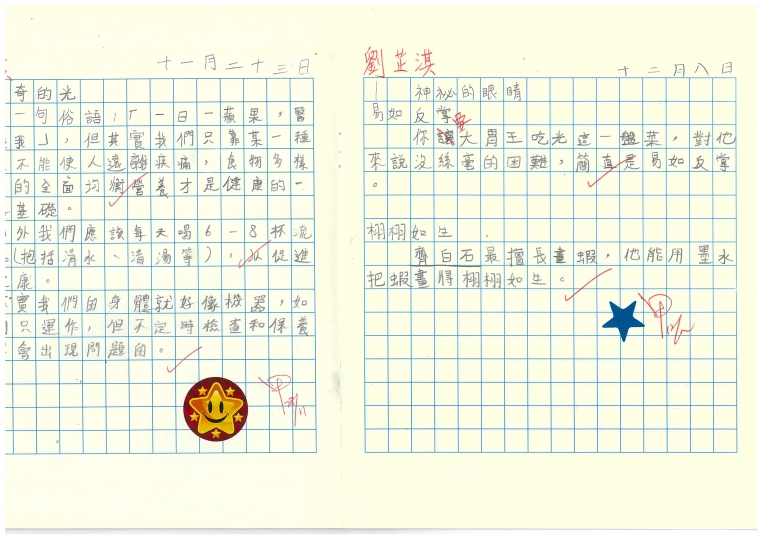 十一月二十三日
奇的光
一句俗語：「一日一蘋果，醫
我」，但其實我們只靠某一種
不能使人遠離疾病，食物多樣
的全面均衡營養才是健康的一
基礎。
外我們應該每天喝6－8杯流
(抱括清水、清湯等)，以促進
康。
實我們的身體就好像機器，如
只運作，但不定時檢查和保養
會出現問題的。
劉芷淇
十二月八日
神祕的眼睛
易如反掌
你讓大胃王吃光這一盤菜，對他
來說沒絲毫的困難，簡直是易如反掌
。
栩栩如生
齊白石最擅長畫蝦，他能用墨水
把蝦畫得栩栩如生。